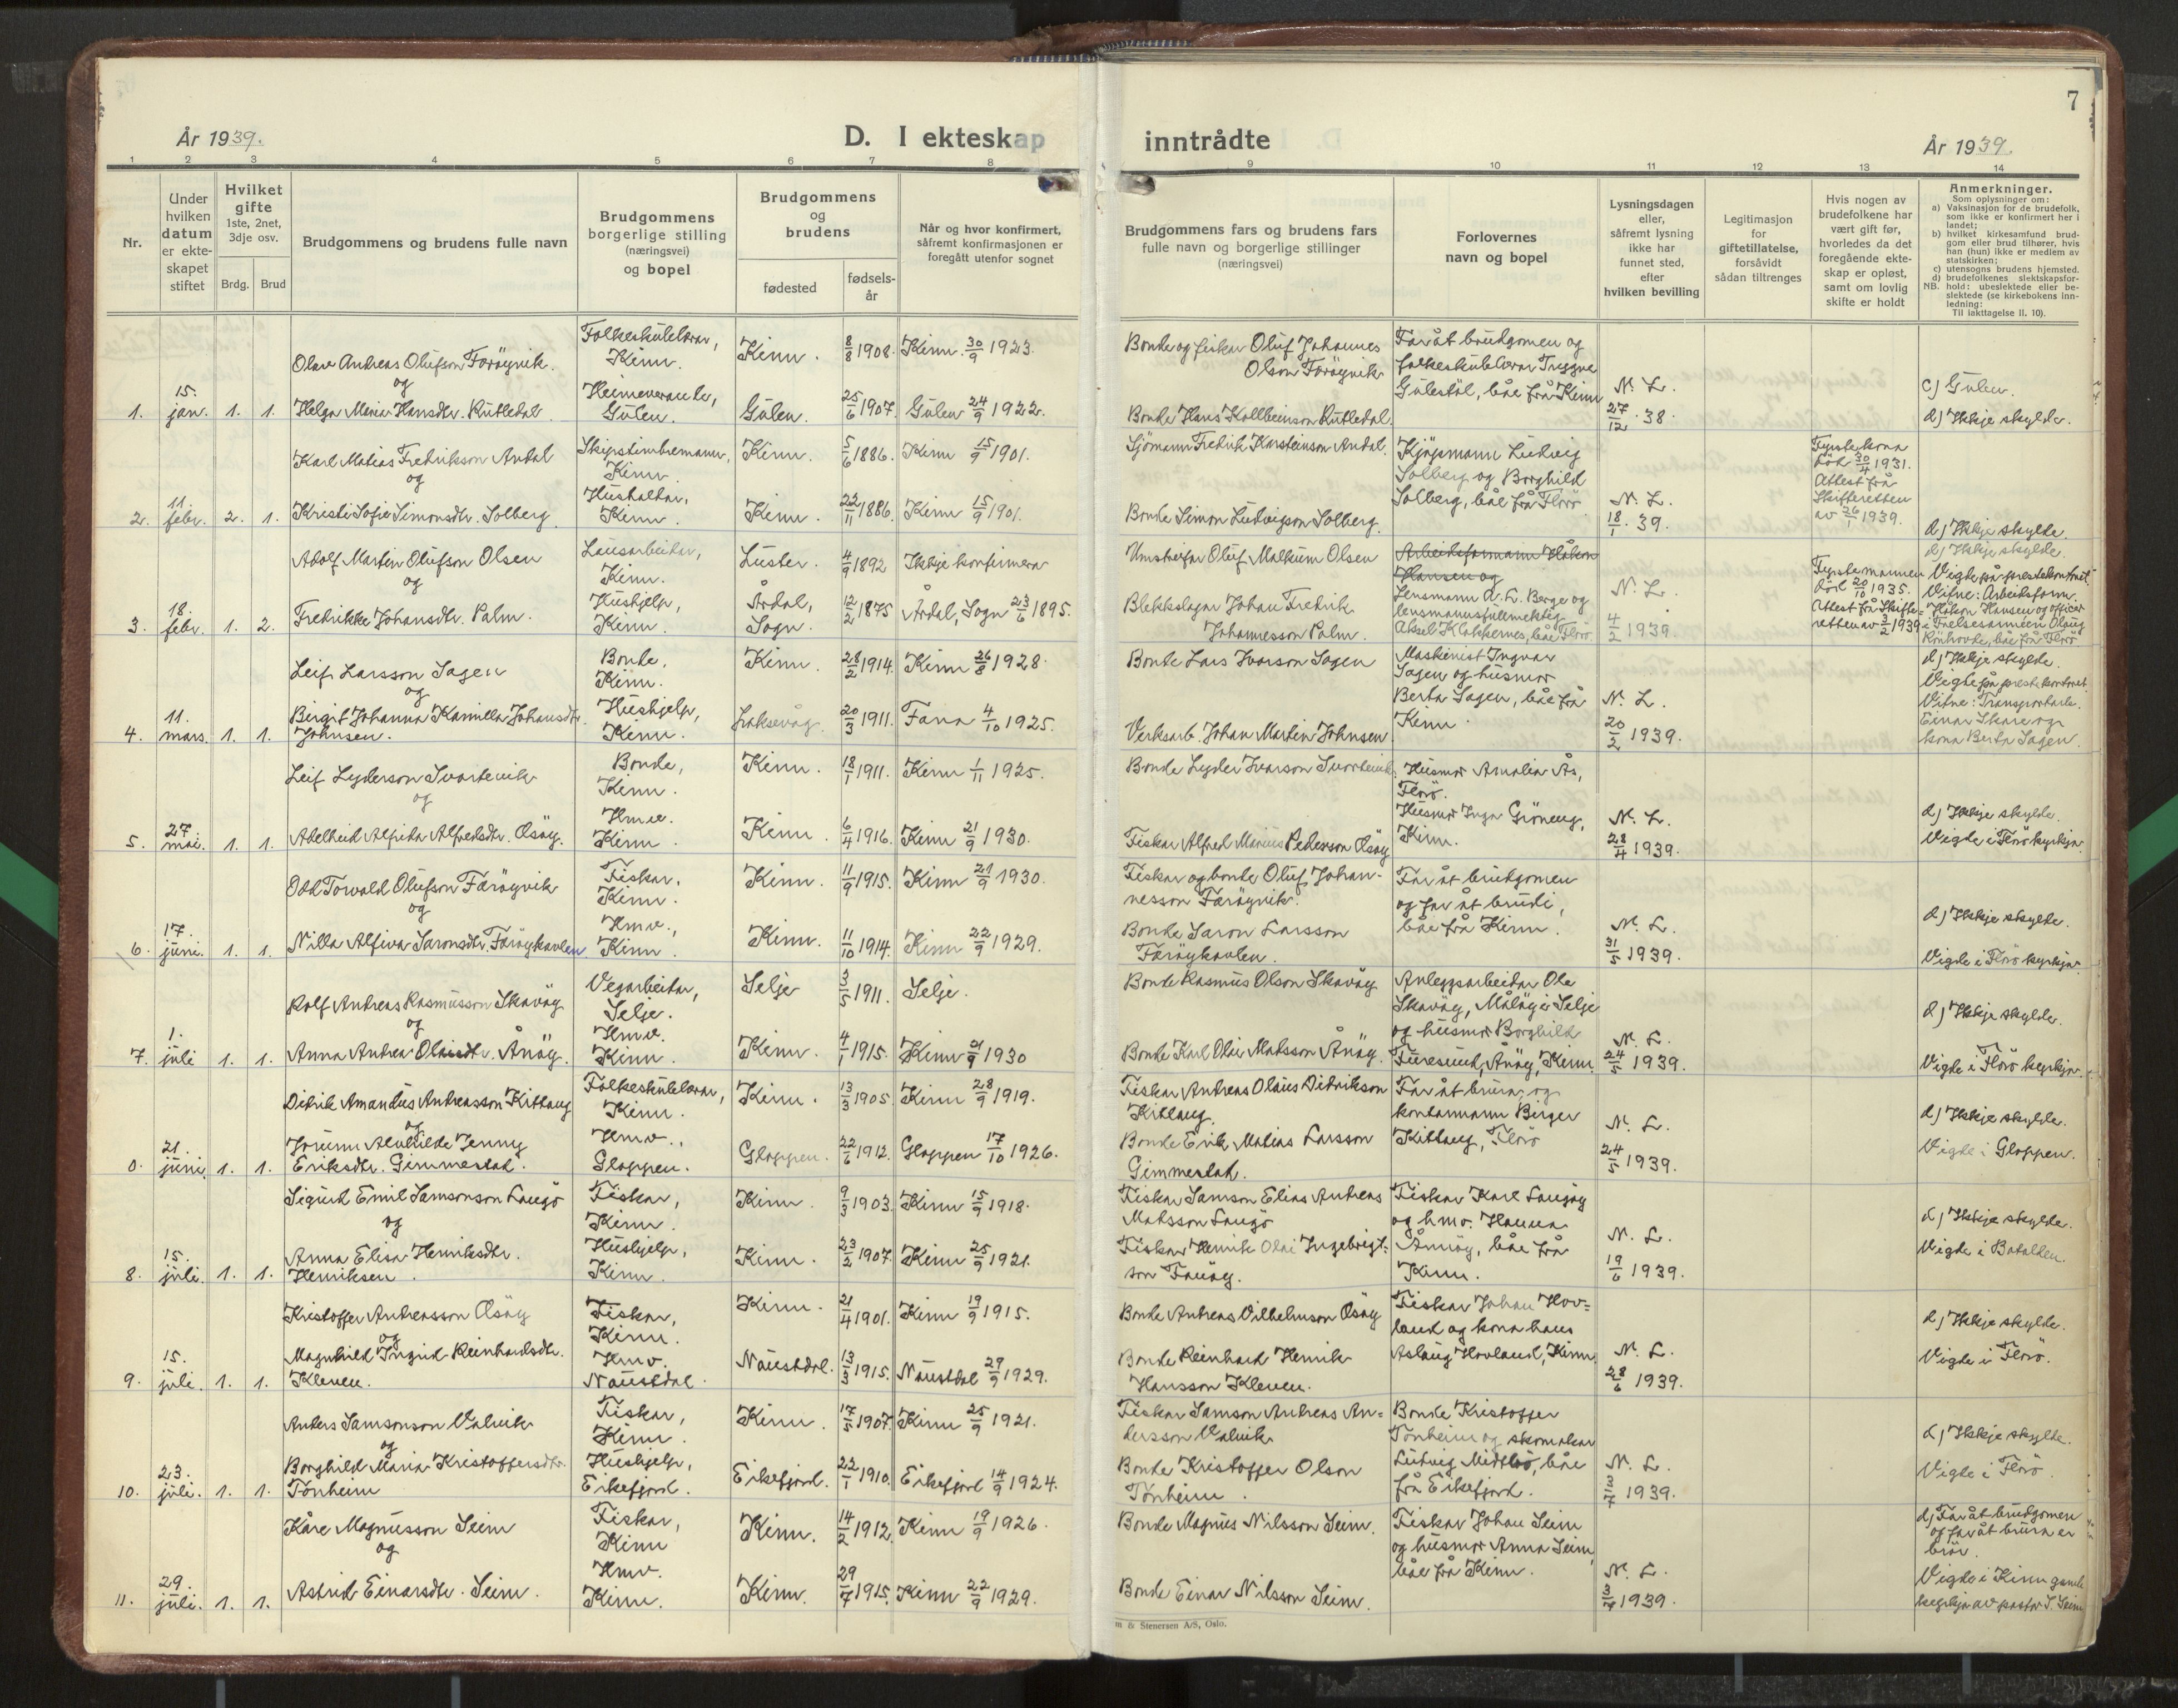 7
År 1939.
D. I ekteskap inntrådte
År 1939.
1 2 3 4 5 6 7 8 9 10 11 12 13 14
Nr.
Under hvilken datum er ekteskapet stiftet
Hvilket gifte 1ste, 2net, 3dje osv.
Brdg. Brud
Brudgommens og brudens fulle navn
Brudgommens borgerlige stilling (næringsvei) og bopel
Brudgommens og brudens
fødested
fødsels-år
Når og hvor konfirmert, såfremt konfirmasjonen er foregått utenfor sognet
Brudgommens fars og brudens fars fulle navn og borgerlige stillinger (næringsvei)
Forlovernes navn og bopel
Lysningsdagen eller, såfremt lysning ikke har funnet sted, efter hvilken bevilling
Legitimasjon for giftetillatelse, forsåvidt sådan tiltrenges
Hvis nogen av brudefolkene har vært gift før, hvorledes da det foregående ekteskap er opløst, samt om lovlig skifte er holdt
Anmerkninger.
Som oplysninger om:
a) Vaksinasjon for de brudefolk, som ikke er konfirmert her i landet;
b) hvilket kirkesamfund brudgom eller brud tilhører, hvis han (hun) ikke er medlem av statskirken;
c) utensogns brudens hjemsted.
d) brudefolkenes slektskapsforhold: ubeslektede eller beslektede (se kirkebokens innledning:
NB.
Til iakttagelse II. 10).
1. 15. jan. 1. 1.
Olav Andreas Olufson Førøyvik.
og
Helga Maria Hansdtr. Rutledal.
Folkeskulelærar, Kinn.
Heimeverande, Gulen.
Kinn. 8/8 1908. Kinn 30/9 1923.
Gulen. 25/6 1907. Gulen 24/9 1922.
Bonde og fiskar Oluf Johannes Olson Førøyvik
Bonde Hans Kollbeinson Rutledal.
Far åt brudgomen og folkeskulelærar Tryggve Gulestøl, båe frå Kinn
N. L. 27/12. 38.
c) Gulen.
d) Ikkje skylde.
2. 11. febr. 2. 1.
Karl Matias Fredrikson Ardal
og
Kristi Sofie Simonsdtr. Solberg
Skipstimbremann, Kinn.
Hushaldar, Kinn.
Kinn. 5/6 1886. Kinn 15/9 1901.
Kinn. 22/11 1886. Kinn 15/9 1901.
Sjömann Fredrik Karsteinson Ardal.
Bonde Simon Ludvigson Solberg.
Kjøpmann Ludvig Solberg og Borghild Solberg, båe frå Florö
N. L. 18/1. 39.
Fyrste kona död 30/4 1931. Attest frå Skifteretten av 26/1 1939.
d) Ikkje skylde.
3. 18. febr. 1. 2.
Adolf Martin Olufson Olsen
og
Fredrikke Johansdtr. Palm.
Lausarbeidar, Kinn.
Hushjelp, Kinn.
Luster. 4/9 1892 Ikkje konfirmera
Årdal, Sogn. 12/2 1875 Årdal, Sogn 23/6 1895.
Umstreifar Oluf Malkum Olsen
Blekkslagar Johan Fredrik Johannesson Palm.
Arbeidsformann Håkon Hansen og
Lensmann A. L. Berge og lensmannsfullmektig Aksel Klakkernes, båe Florö.
N. L. 4/2 1939
Fyrste mannen död 20/10 1935. Attest frå Skifteretten av 3/2 1939
d) Ikkje skylde.
Vigde på prestekontoret. Vitne: Arbeidsform. Håkon Hansen og officer i Frelsesarmeen Olaug Rönhovde, båe frå Florö
4. 11. mars. 1. 1.
Leif Larsson Sagen
og
Birgit Johanna Kamilla Johansdtr. Johnsen.
Bonde, Kinn.
Hushjelp, Kinn.
Kinn. 28/2 1914. Kinn 26/8 1928.
Laksevåg. 20/3 1911. Fana 4/10 1925.
Bonde Lars Ivarson Sagen
Verksarb. Johan Martin Johnsen
Maskinist Ingvar Sagen og husmor Berta Sagen, båe frå Kinn.
N. L. 20/2 1939.
d) Ikkje skylde.
Vigde på prestekontoret. Vitne: Transportarb. Einar Skare og kona Berta Sagen.
5. 27. mai. 1. 1.
Leif Lyderson Svortevik
og
Adelheid Alfida Alfredsdtr. Osöy.
Bonde, Kinn.
Hmv. Kinn
Kinn. 18/1 1911. Kinn 1/11 1925.
Kinn. 6/4 1916. Kinn 21/9 1930.
Bonde Lyder Ivarson Svortevik.
Fiskar Alfred Marius Pederson Osöy
Husmor Amalia Ås, Florö.
Husmor Inga Gröneng, Kinn.
N. L. 28/4 1939.
d) Ikkje skylde.
Vigde i Florö kyrkja.
6. 17. juni. 1. 1.
Odd Torvald Olufson Færöyvik
og
Nilla Alfiva Saronsdtr. Færöyhavlen
Fiskar, Kinn.
Hmv., Kinn.
Kinn. 11/9 1915. Kinn 21/9 1930.
Kinn. 11/10 1914. Kinn 22/9 1929.
Fiskar og bonde Oluf Johannesson Færöyvik.
Bonde Saron Larsson Færöyhavlen.
Far åt brudgomen og far åt brudi, båe frå Kinn.
N. L. 31/5 1939.
d) Ikkje skylde.
Vigde i Florö kyrkja.
7. 1. juli 1. 1.
Rolf Andreas Rasmusson Skavöy
og
Anna Andrea Olaisdtr. Ånöy.
Vegarbeidar, Selje.
Hmv. Kinn.
Selje 3/5 1911. Selje.
Kinn. 4/1 1915. Kinn 21/9 1930
Bonde Rasmus Olson Skavöy
Bonde Karl Olai Matsson Ånöy.
Anleggsarbeidar Ole Skavöy, Måløy i Selje og husmor Borghild Furesund, Ånöy, Kinn.
N. L. 24/5 1939.
d) Ikkje skylde.
Vigde i Florö kyrkja.
0. 21. juni 1. 1.
Didrik Amandus Andreasson Kittang
og
Jorunn Alvhilde Jenny Eriksdtr. Gimmestad.
Folkeskulelærar, Kinn.
Hmv., Gloppen.
Kinn. 13/3 1905. Kinn 28/9 1919.
Gloppen. 22/6 1912. Gloppen 17/10 1926.
Fiskar Andreas Olaus Didrikson Kittang.
Bonde Erik Matias Larsson Gimmestad.
Far åt brura og kontormann Birger Kittang, Florö
N. L. 24/5 1939.
d) Ikkje skylde.
Vigde i Gloppen.
8. 15. juli. 1. 1.
Sigurd Emil Samsonson Faugö
og
Anna Elisa Henriksdtr. Henriksen.
Fiskar, Kinn.
Hushjelp, Kinn.
Kinn. 9/3 1903. Kinn 15/9 1918.
Kinn. 23/2 1907. Kinn 25/9 1921.
Fiskar Samson Elias Andreas Matsson Faugö
Fiskar Henrik Olai Ingebrigtson Fauöy.
Fiskar Karl Faugöy og hmv. Hanna Ånnöy, båe frå Kinn.
N. L. 19/6 1939.
d) Ikkje skylde.
Vigde i Batalden.
9. 15. juli. 1. 1.
Kristoffer Andreasson Osöy
og
Magnhild Ingrid Reinhardsdtr. Kleven.
Fiskar, Kinn.
Hmv. Naustdal.
Kinn. 21/4 1901. Kinn 19/9 1915.
Naustdal. 13/3 1915. Naustdal 29/9 1929.
Bonde Andreas Vilhelmson Osöy
Bonde Reinhard Henrik Hansson Kleven.
Fiskar Johan Hovland og kona hans Aslaug Hovland, Kinn.
N. L. 28/6 1939.
d) Ikkje skylde.
Vigde i Florö.
10. 23. juli. 1. 1.
Anders Samsonson Valvik
og
Borghild Maria Kristoffersdtr. Tonheim
Fiskar, Kinn.
Hushjelp, Eikefjord.
Kinn. 17/5 1907. Kinn 25/9 1921.
Eikefjord. 22/1 1910. Eikefjord 14/9 1924.
Fiskar Samson Andreas Andersson Valvik
Bonde Kristoffer Olson Tonheim.
Bonde Kristoffer Tonheim og skomakar Ludvig Midtbö, båe frå Eikefjord.
N. L. 3/7 1939.
d) Ikkje skylde.
Vigde i Florö.
11. 29. juli. 1. 1.
Kåre Magnusson Seim
og
Astrid Einarsdtr. Seim.
Fiskar, Kinn
Hmv. Kinn.
Kinn. 14/2 1912. Kinn 19/9 1926.
Kinn. 29/7 1915. Kinn 22/9 1929.
Bonde Magnus Nilsson Seim.
Bonde Einar Nilsson Seim.
Fiskar Johan Seim og husmor Anna Seim, båe frå Kinn.
N. L. 3/7 1939.
d) Far åt brudgomen og far åt brura er brör.
Vigde i Kinn gamle kyrkja av pastor S. Seim
m & Stenersen A/S, Oslo.